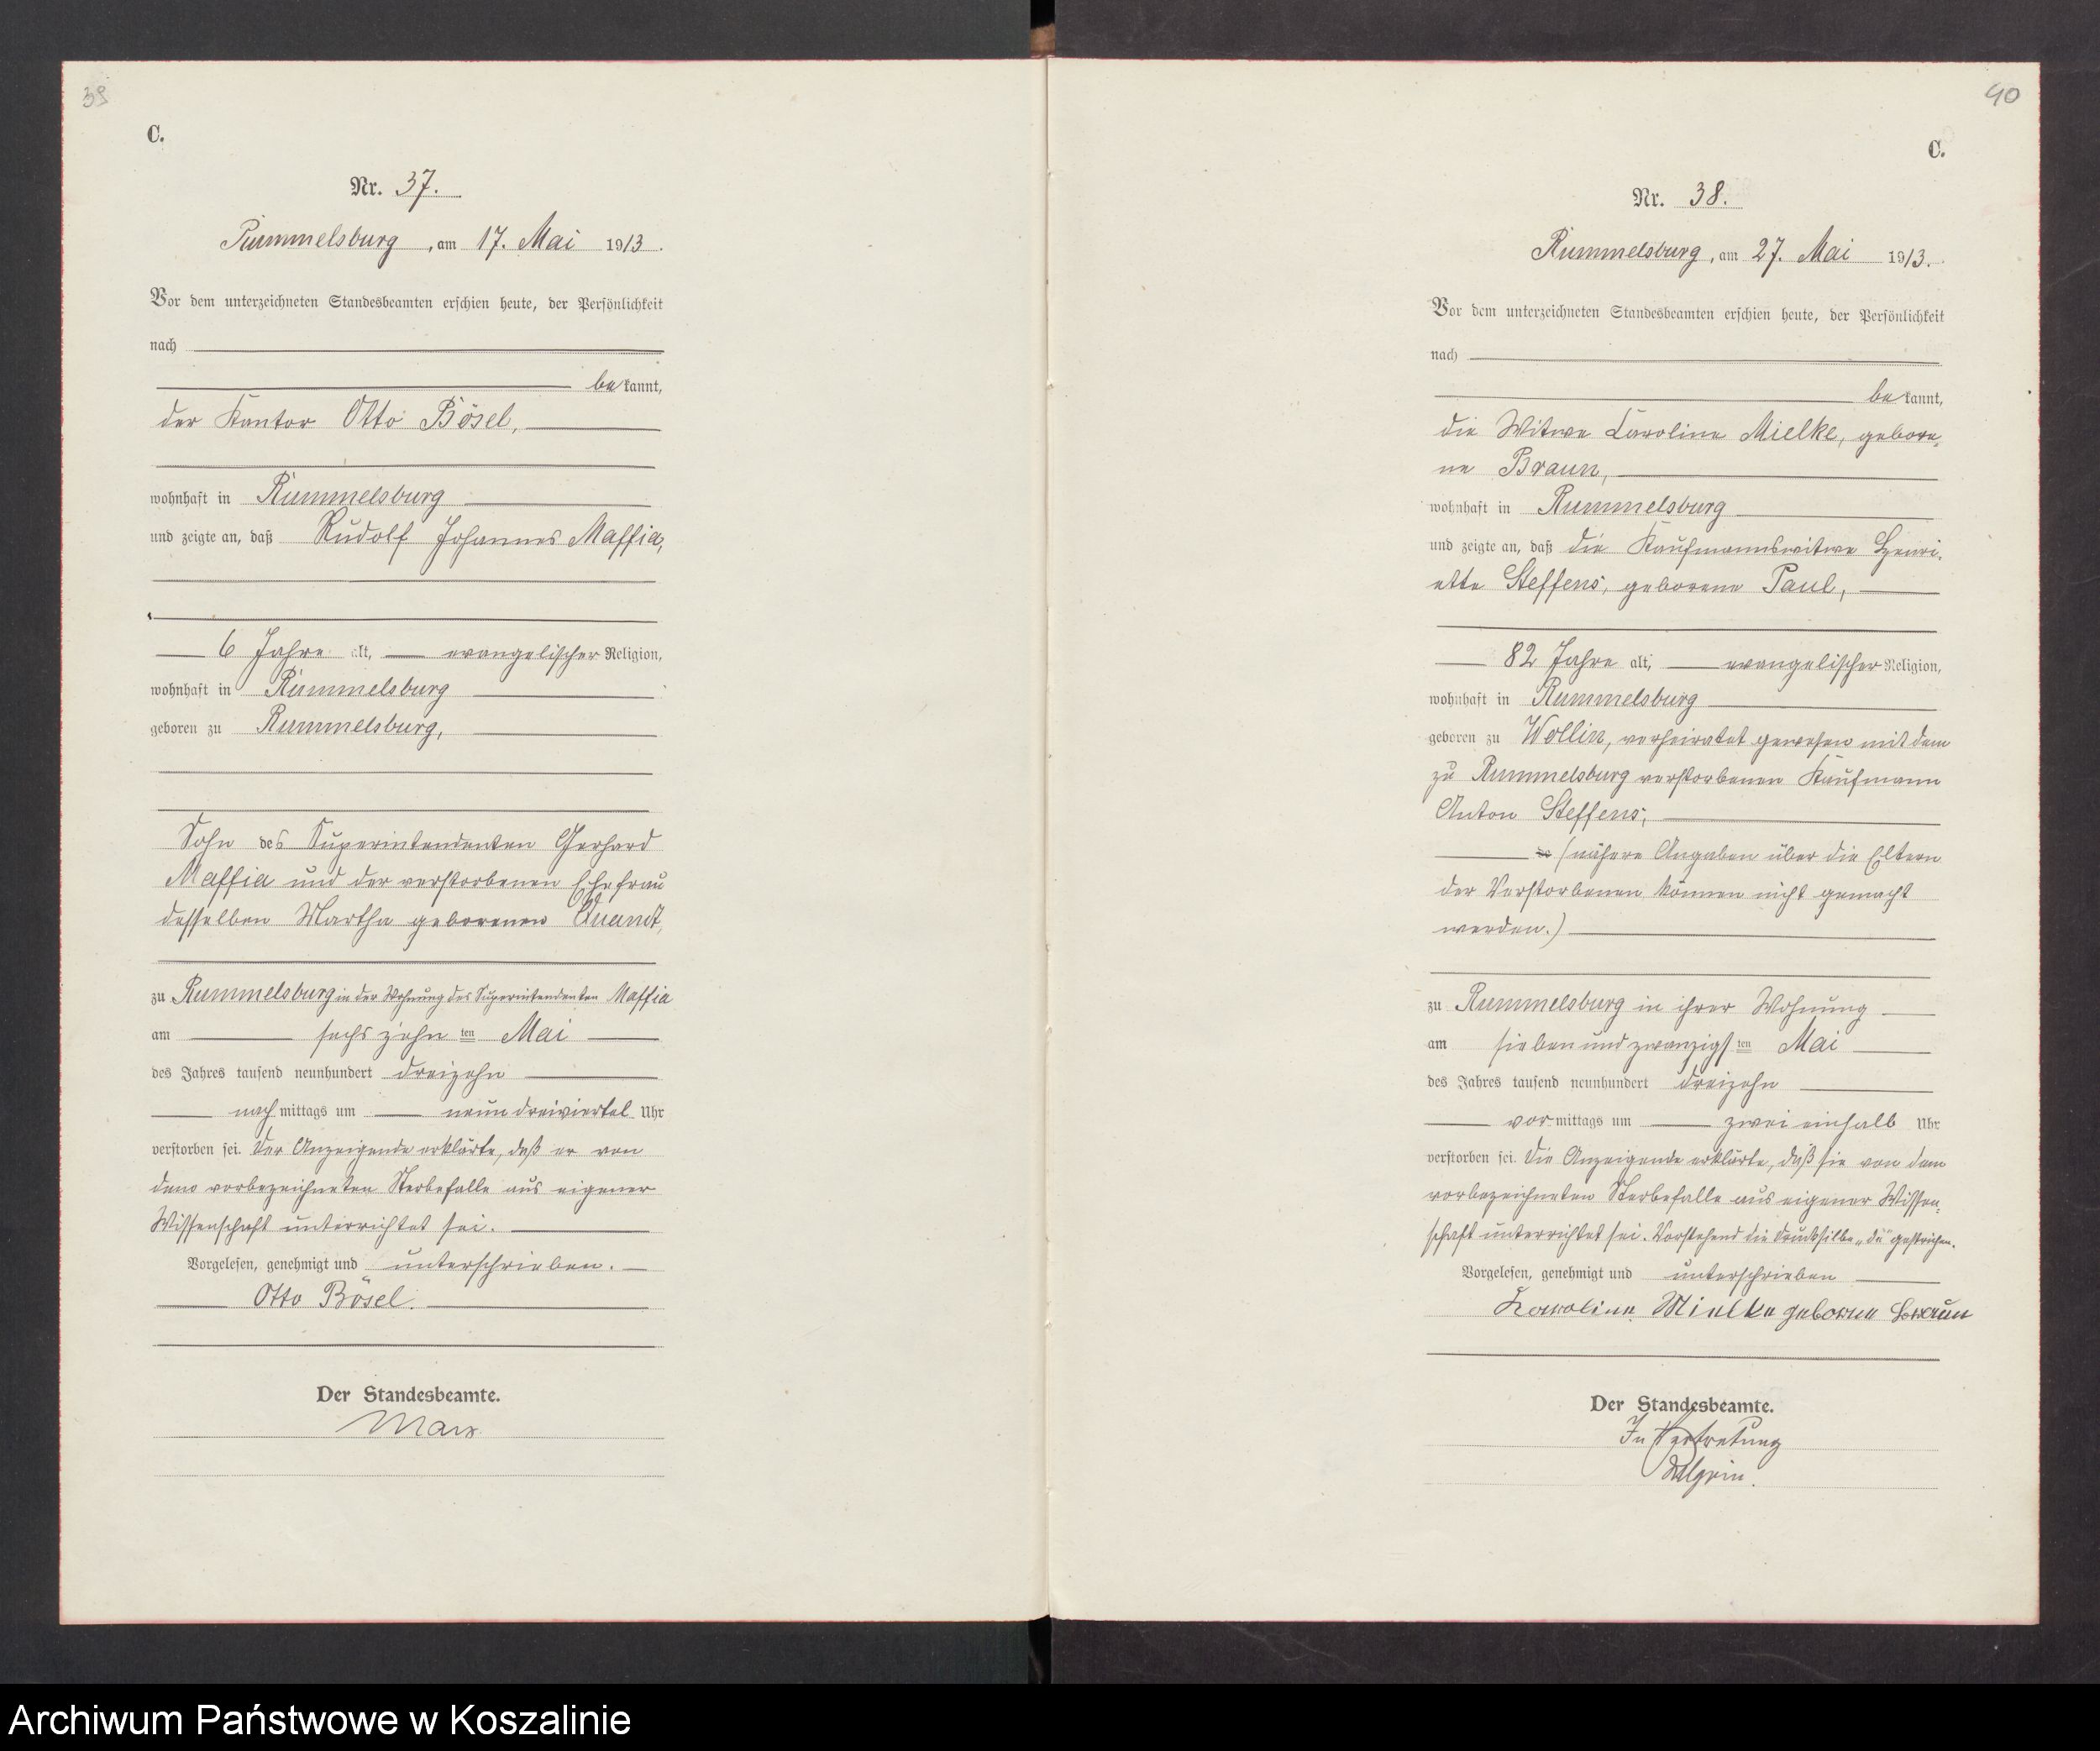 39
C.
Nr. 37.
Rummelsburg, am 17. Mai 1913.
Vor dem unterzeichneten Standesbeamten erschien heute, der Persönlichkeit
nach
bekannt,
der Kantor Otto Bösel,
wohnhaft in Rummelsburg
und zeigte an, daß Rudolf Johannes Maffia,
6 Jahre alt, evangelischer Religion,
wohnhaft in Rummelsburg
geboren zu Rummelsburg,
Sohn des Superintendenten Gerhard
Maffia und der verstorbenen Ehefrau
desselben Martha geborenen Quandt,
zu Rummelsburg in der Wohnung des Superintendenten Maffia
am sechszehnten Mai
des Jahres tausend neunhundert dreizehn
nachmittags um neun dreiviertel Uhr
verstorben sei. Der Anzeigende erklärte, daß er von
dem vorbezeichneten Sterbefalle aus eigener
Wissenschaft unterrichtet sei.
Vorgelesen, genehmigt und unterschrieben.
Otto Bösel.
Der Standesbeamte.
40
C.
Nr. 38.
Rummelsburg, am 27. Mai 1913.
Vor dem unterzeichneten Standesbeamten erschien heute, der Persönlichkeit
nach
bekannt,
die Witwe Caroline Mielke, gebore-
ne Braun,
wohnhaft in Rummelsburg
und zeigte an, daß die Kaufmannswitwe Henri-
ette Steffens, geborene Paul,
82 Jahre alt, evangelischer Religion,
wohnhaft in Rummelsburg
geboren zu Wollin, verheiratet gewesen mit dem
zu Rummelsburg verstorbenen Kaufmann
Anton Steffens,
(nähere Angaben über die Eltern
der Verstorbenen können nicht gemacht
werden.)
zu Rummelsburg in ihrer Wohnung
am siebenundzwanzigsten Mai
des Jahres tausend neunhundert dreizehn
vormittags um zwei einhalb Uhr
verstorben sei. Die Anzeigende erklärte, daß sie von dem
vorbezeichneten Sterbefalle aus eigener Wissen-
schaft unterrichtet sei. Vorstehend die Drucksilbe „de" gestrichen.
Vorgelesen, genehmigt und unterschrieben
Karoline Mielke geborne Braun
Der Standesbeamte.
In Vertretung
Archiwum Państwowe w Koszalinie